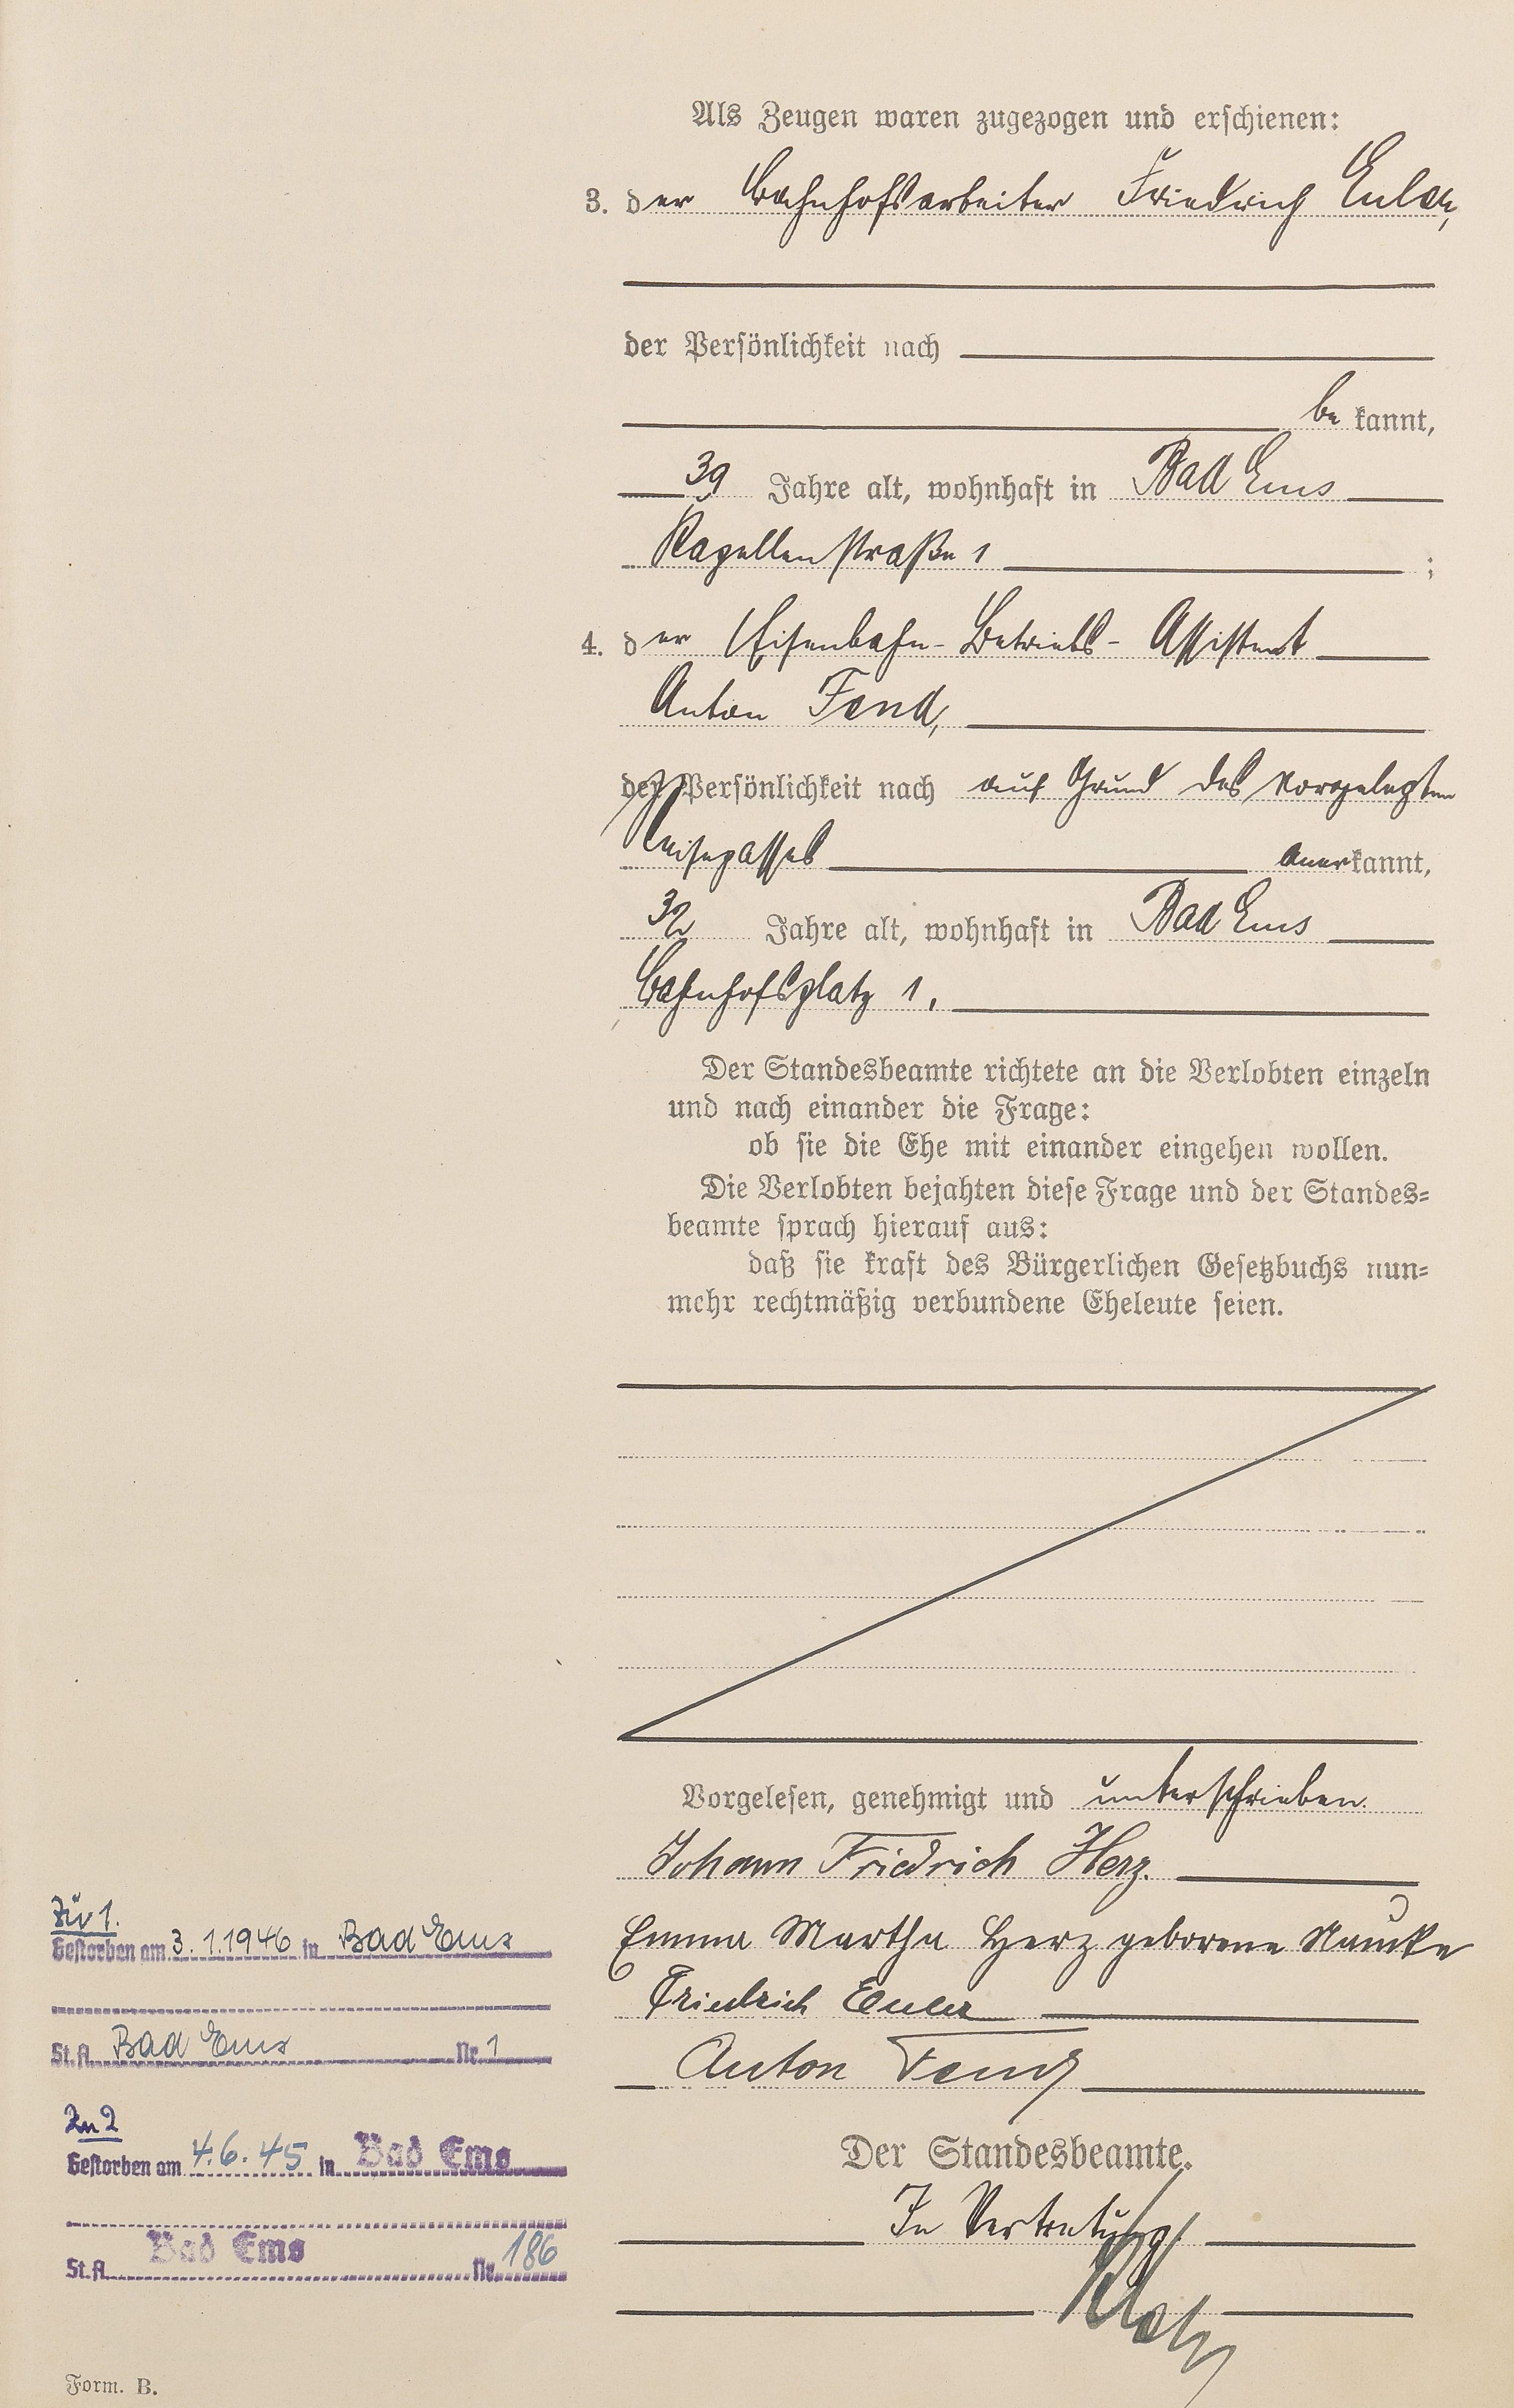 Als Zeugen waren zugezogen und erschienen:
3. der Bahnhofsarbeiter Friedrich Euler,
der Persönlichkeit nach
be kannt,
39 Jahre alt, wohnhaft in Bad Ems
Kapellenstraße 1 ;
4. der Eisenbahn-Betriebs-Assistent
Anton Fend,
der Persönlichkeit nach auf Grund des vorgelegten
Reisepasses anerkannt,
32 Jahre alt, wohnhaft in Bad Ems
Bahnhofsplatz 1.
Der Standesbeamte richtete an die Verlobten einzeln
und nach einander die Frage:
ob sie die Ehe mit einander eingehen wollen.
Die Verlobten bejahten diese Frage und der Standes=
beamte sprach hierauf aus:
daß sie kraft des Bürgerlichen Gesetzbuchs nun=
mehr rechtmäßig verbundene Eheleute seien.
Vorgelesen, genehmigt und unterschrieben.
Johann Friedrich Herz.
Emma Martha Herz geborene Naucke
Friedrich Euler
Anton Fend
Der Standesbeamte.
In Vertretung
Zu 1.
Gestorben am 3.1.1946 in Bad Ems
St.A. Bad Ems Nr. 1
Zu 2
Gestorben am 4.6.45 in Bad Ems
St.A. Bad Ems Nr. 186
Form. B.